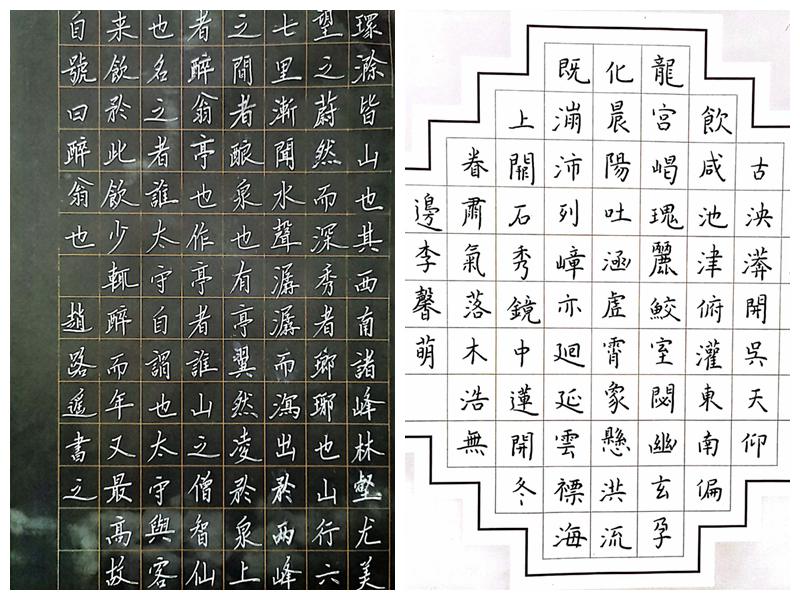 環滁皆山也其西南諸峰林壑尤美
望之蔚然而深秀者瑯琊也山行六
七里漸聞水聲潺潺而瀉出於兩峰
之間者釀泉也有亭翼然凌於泉上
者醉翁亭也作亭者誰山之僧智仙
也名之者誰太守自謂也太守與客
来飲於此飲少輒醉而年又最高故
自號曰醉翁也 趙路遥書之
古泱漭開吳天仰
飲咸池津俯灌東南偏
龍宮嵑瑰麗鮫室閟幽玄孕
化晨陽吐涵虛霄象懸洪流
既漰沛列嶂亦廻延雲標海
上關石秀鏡中蓮開冬
眷肅氣落木浩無
邊李馨萌